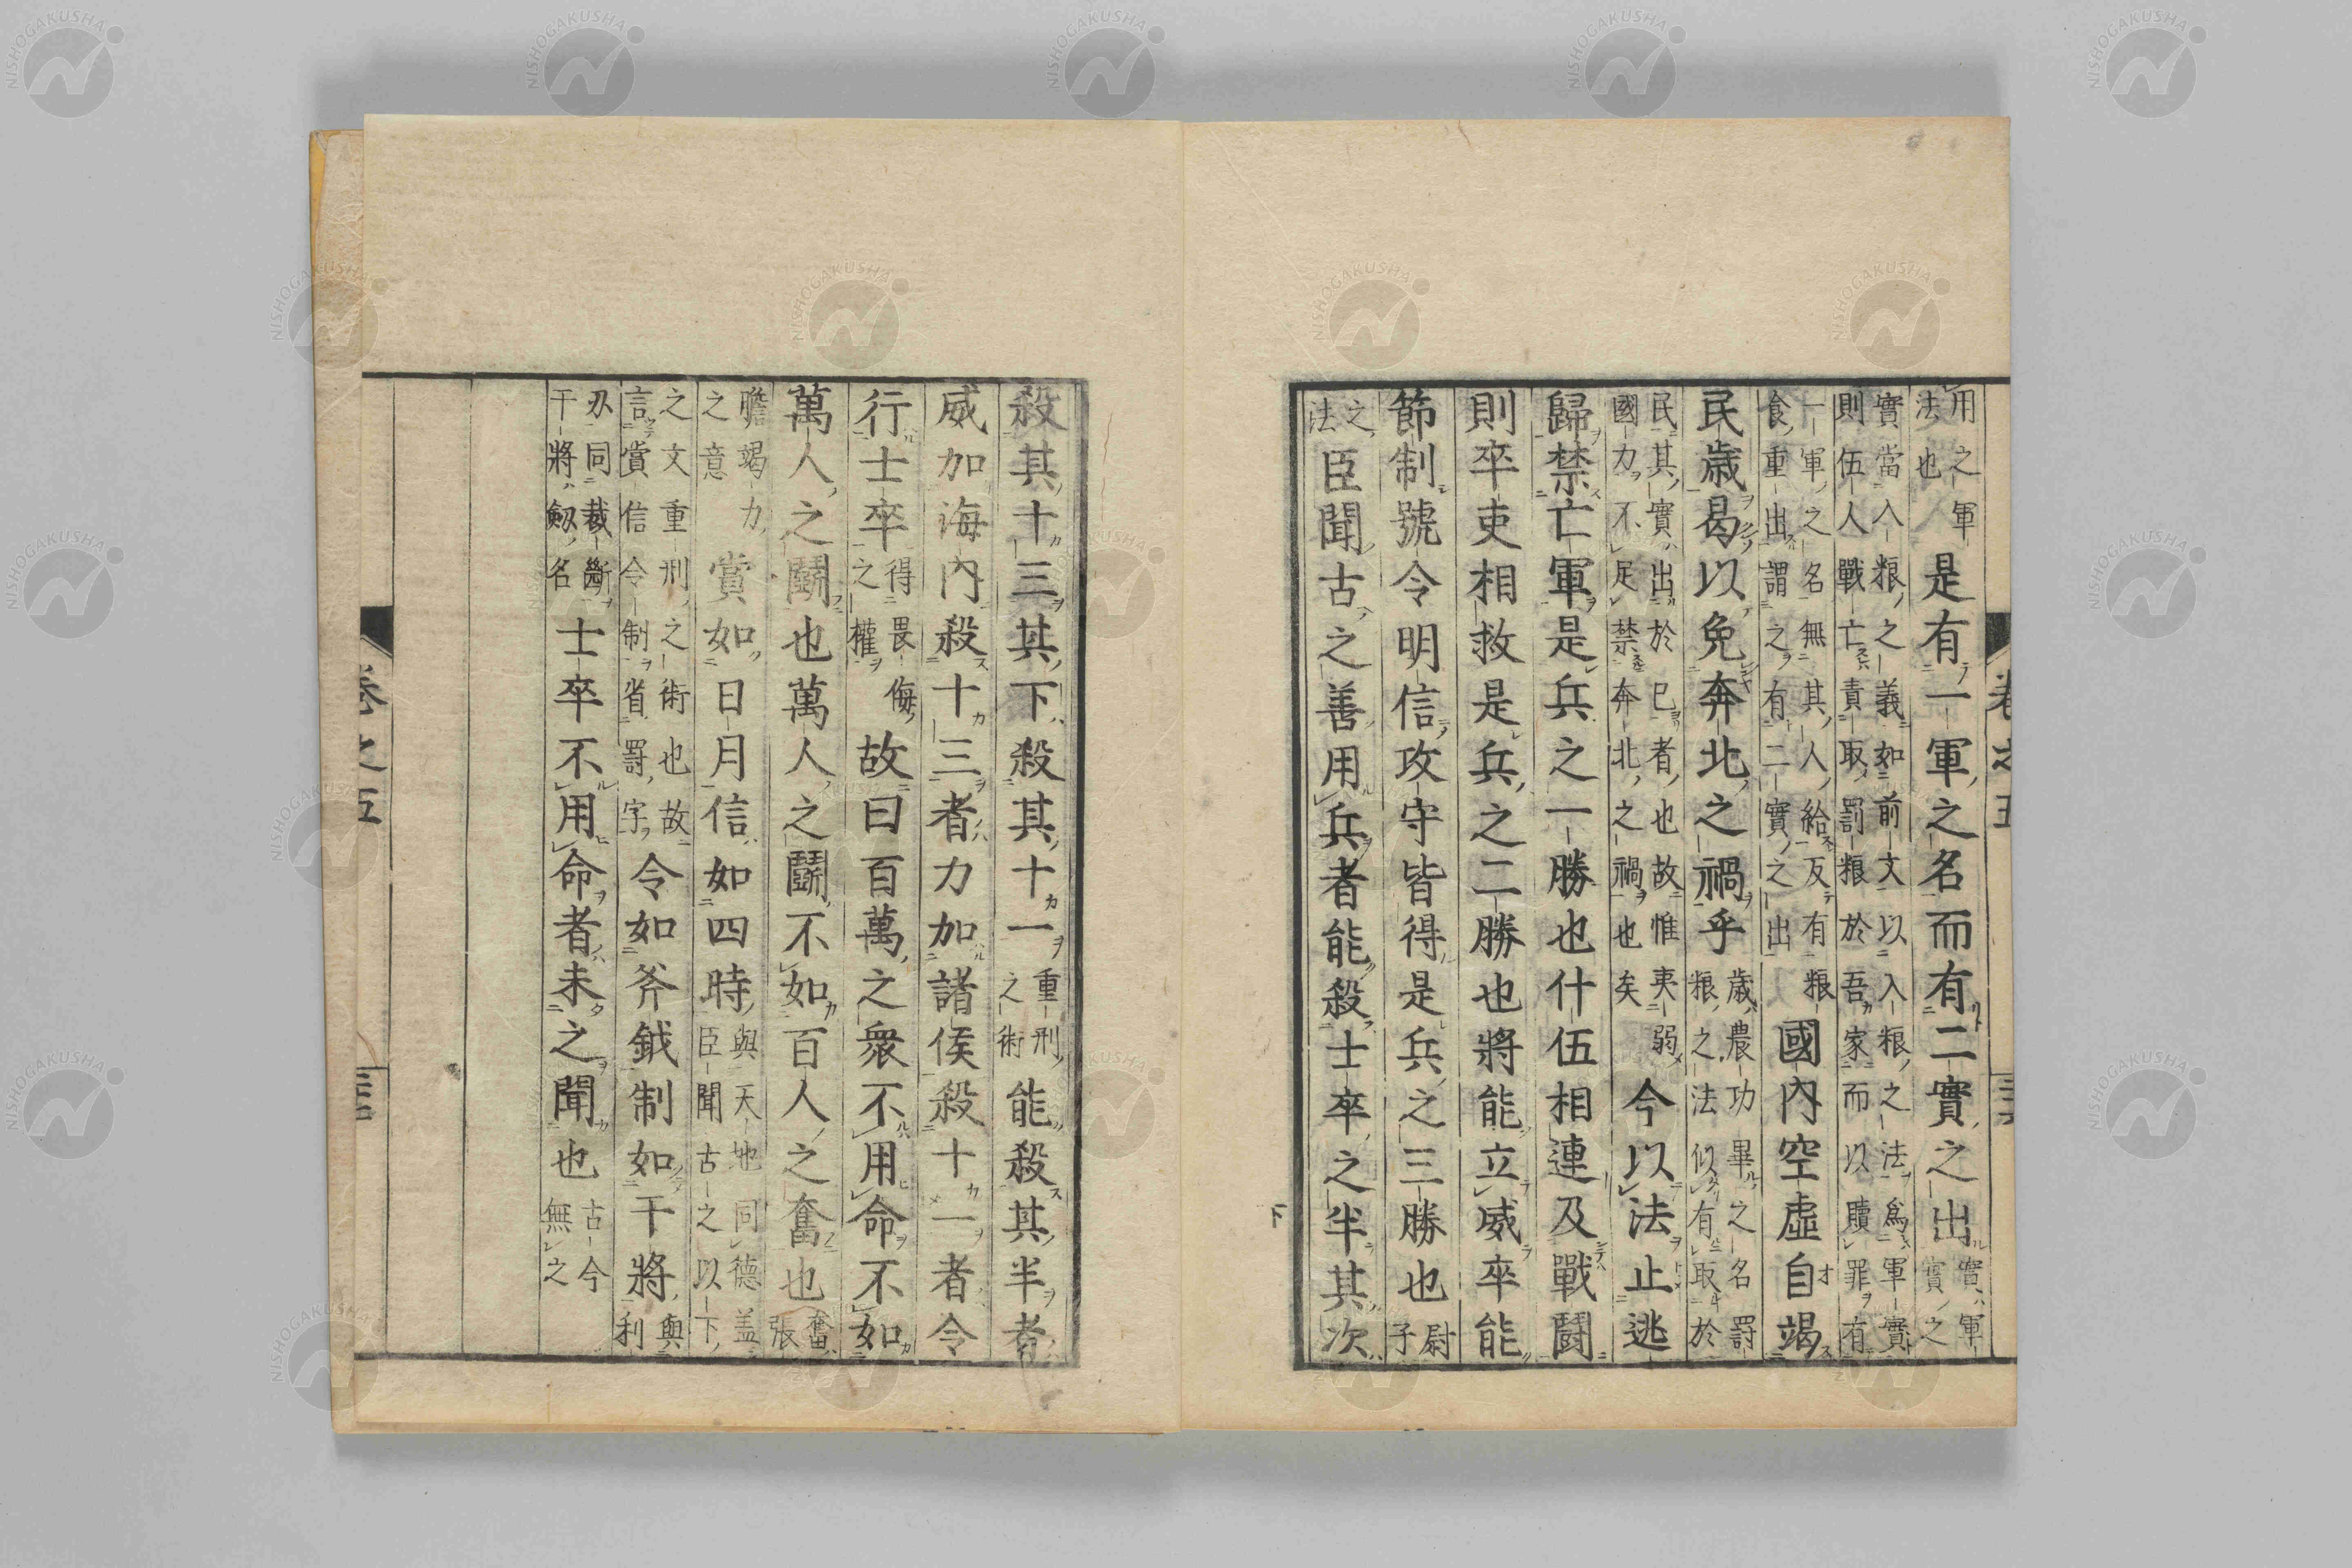 卷之五
用之軍法也是有一軍之名而有二實之出實軍實之
實當入粮之義如前文以入粮之法為軍實則伍人戰亡責取罰粮於吾家而以贖罪有
一軍之名無其人給反有粮食重出謂之有二實之出國內空虛自竭
民歲曷以免奔北之禍乎歲農功畢之名罰粮之法似有取於
民其實出於已者也故惟夷弱國力不足禁奔北之禍也矣今以法止逃
歸禁亡軍是兵之一勝也什伍相連及戰鬪
則卒吏相救是兵之二勝也將能立威卒能
節制號令明信攻守皆得是兵之三勝也尉子
之法臣聞古之善用兵者能殺士卒之半其次
下
殺其十三其下殺其十一重刑之術能殺其半者
威加海內殺十三者力加諸侯殺十一者令
行士卒得畏侮之權故曰百萬之衆不用命不如
萬人之鬪也萬人之鬪不如百人之奮也奮張
膽竭力之意賞如日月信如四時與天地同德盖臣聞古之以下
之文重刑之術也故言賞信令制省罰字令如斧鉞制如干將與利
刃同裁斷干將劔名士卒不用命者未之聞也古今無之
卷之五